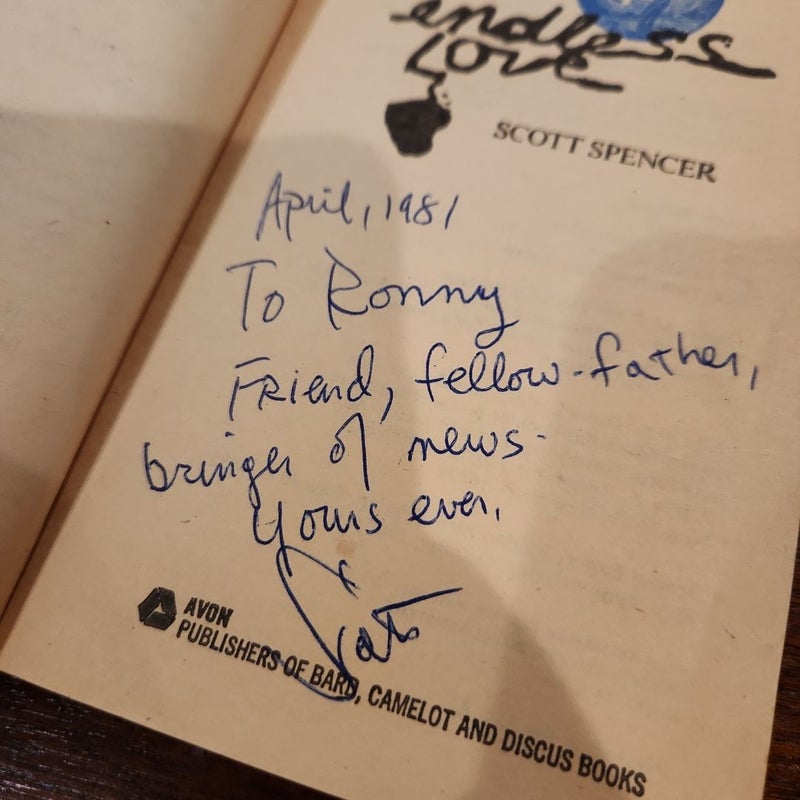 endless
love
SCOTT SPENCER
April, 1981
To Ronny
Friend, fellow-father,
bringer of news.
Yours ever,
AVON
PUBLISHERS OF BARD, CAMELOT AND DISCUS BOOKS